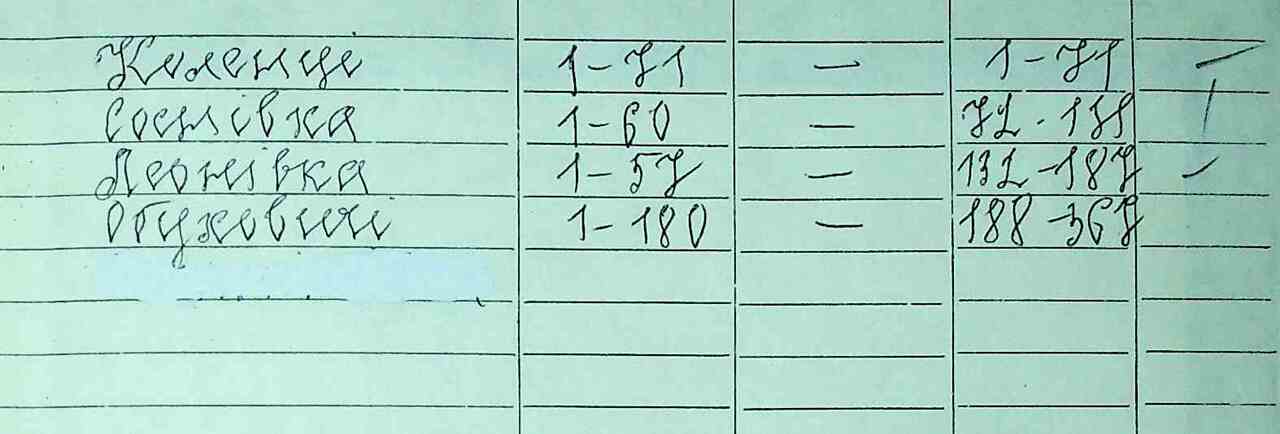 Коленці 1-71 — 1-71
Соснівка 1-60 — 72-131
Леонівка 1-57 — 132-187
Обуховичі 1-180 — 188-367